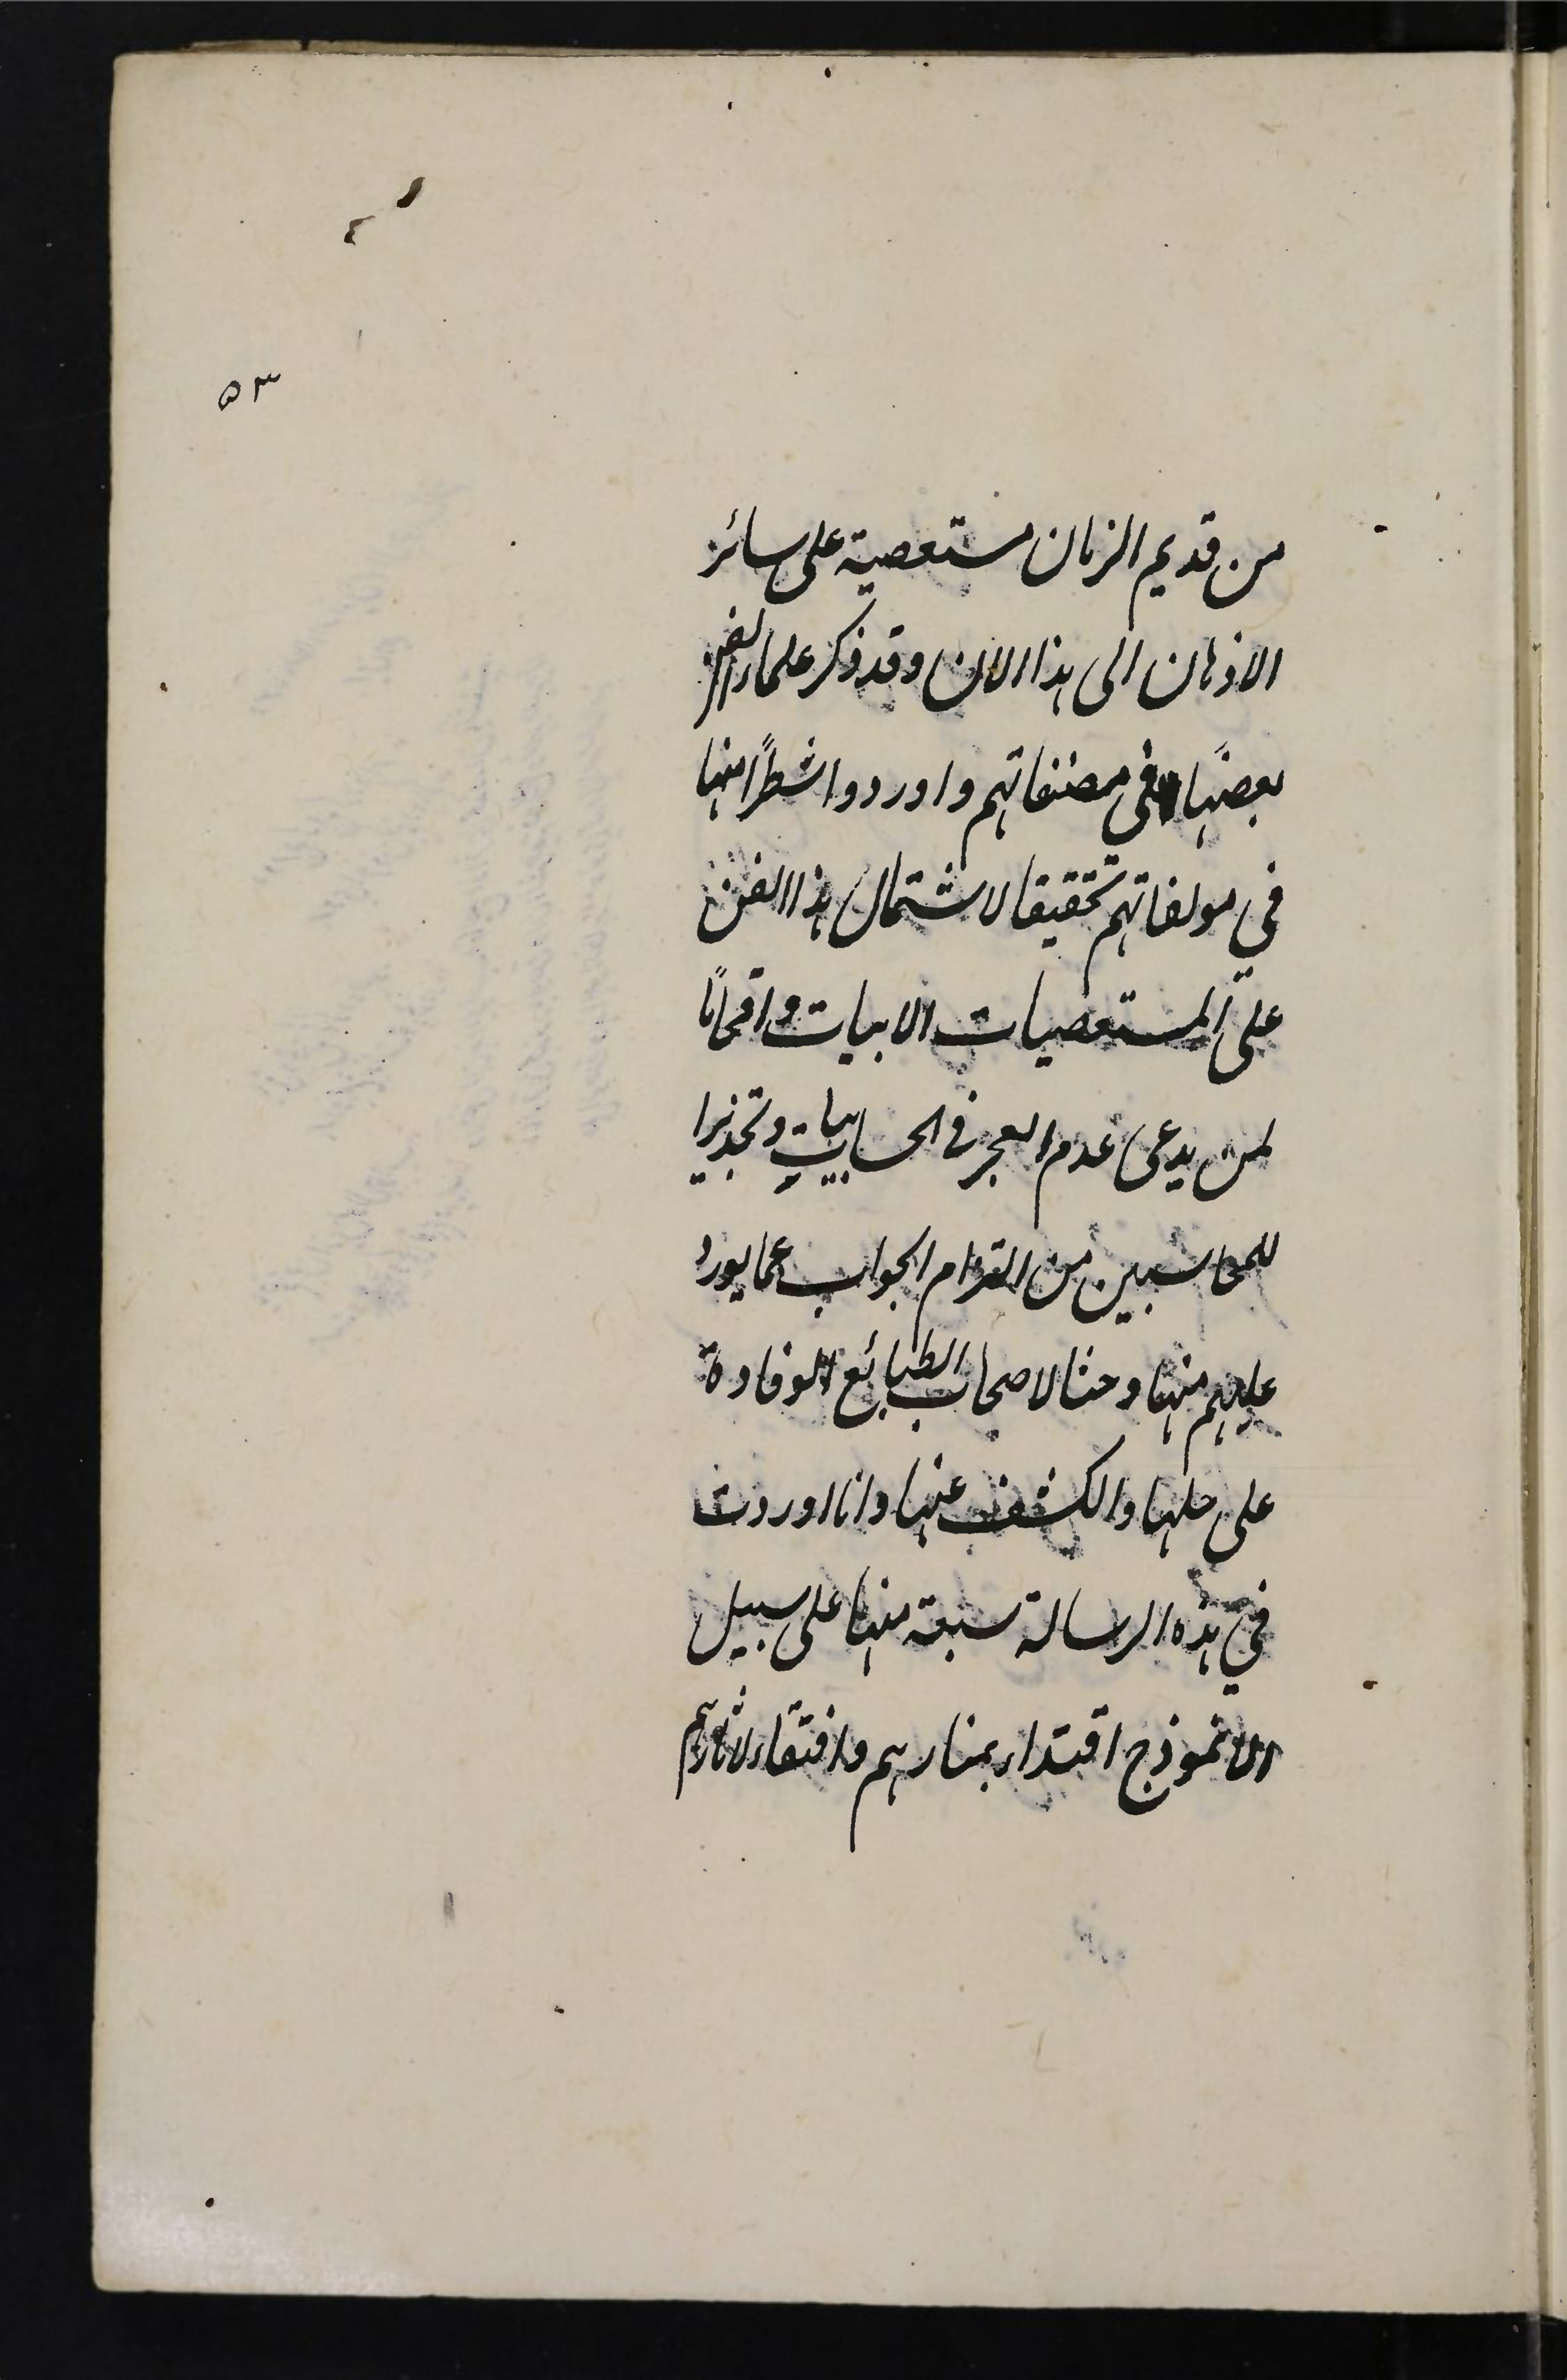 ٥٣
من قديم الزمان مستعصية على سائر
الاذهان الى هذا الان وقد ذكر علماء الفن
بعضها فى مصنفاتهم واوردوا شطرًا منها
في مولفاتهم تحقيقا لاشتمال هذا الفن
على المستعصيات الابيات وافحامًا
لمن يدعى عدم العجز فى الحسابيات وتحذيرا
للمحاسبين من التزام الجواب عما يورد
عليهم منها وحثا لاصحاب الطبائع الوقادة
على حلها والكشف عنها وانا اوردت
في هذه الرسالة سبعة منها على سبيل
الانموذج اقتداء بمنارهم واقتفاء لاثارهم